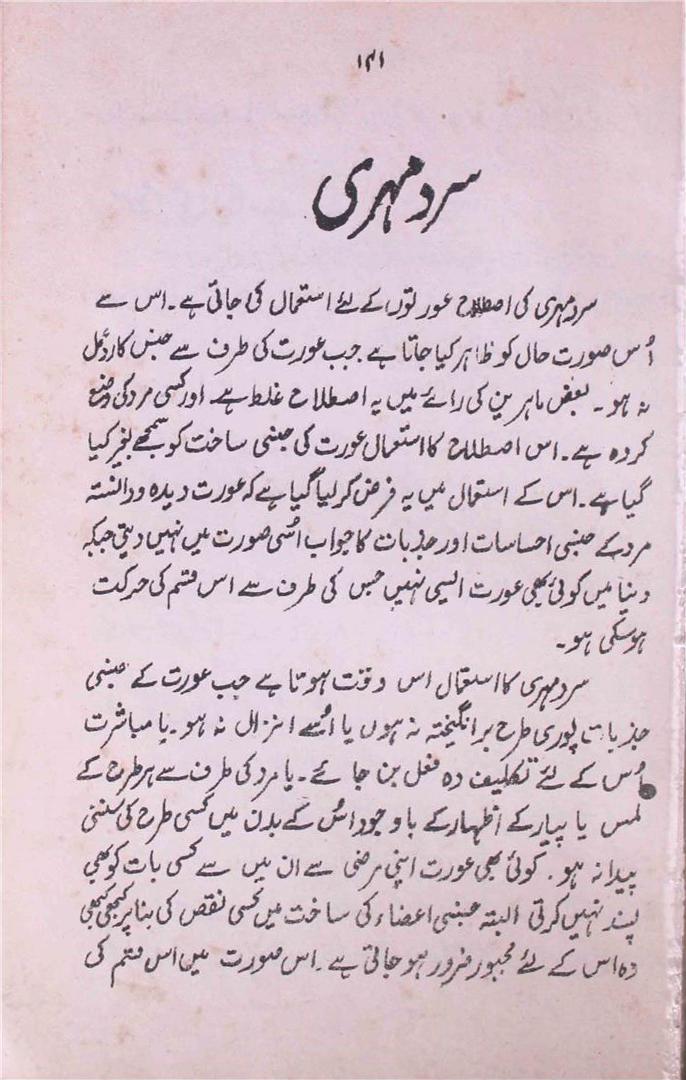 ۱۴۱
سرد مہری
سرد مہری کی اصطلاح عورتوں کے لئے استعمال کی جاتی ہے۔ اس سے
اُس صورت حال کو ظاہر کیا جاتا ہے جب عورت کی طرف سے جنس کا ردّعمل
نہ ہو۔ بعض ماہرین کی رائے میں یہ اصطلاح غلط ہے۔ اور کسی مرد کی وضع
کردہ ہے۔ اس اصطلاح کا استعمال عورت کی جنسی ساخت کو سمجھے بغیر کیا
گیا ہے۔ اس کے استعمال میں یہ فرض کر لیا گیا ہے کہ عورت دیدہ و دانستہ
مرد کے جنسی احساسات اور جذبات کا جواب اُسی صورت میں نہیں دیتی جبکہ
دنیا میں کوئی بھی عورت ایسی نہیں جس کی طرف سے اس قسم کی حرکت
ہو سکی ہو۔
سرد مہری کا استعمال اس وقت ہوتا ہے جب عورت کے جنسی
جذبات پوری طرح برانگیختہ نہ ہوں یا اُسے انزال نہ ہو۔ یا مباشرت
اُس کے لئے تکلیف دہ فعل بن جائے۔ یا مرد کی طرف سے ہر طرح کے
لمس یا پیار کے اظہار کے باوجود اُس کے بدن میں کسی طرح کی سنسنی
پیدا نہ ہو۔ کوئی بھی عورت اپنی مرضی سے ان میں سے کسی بات کو بھی
پسند نہیں کرتی البتہ جنسی اعضاء کی ساخت میں کسی نقص کی بنا پر کبھی کبھی
وہ اس کے لئے مجبور ضرور ہو جاتی ہے۔ اس صورت میں اس قسم کی